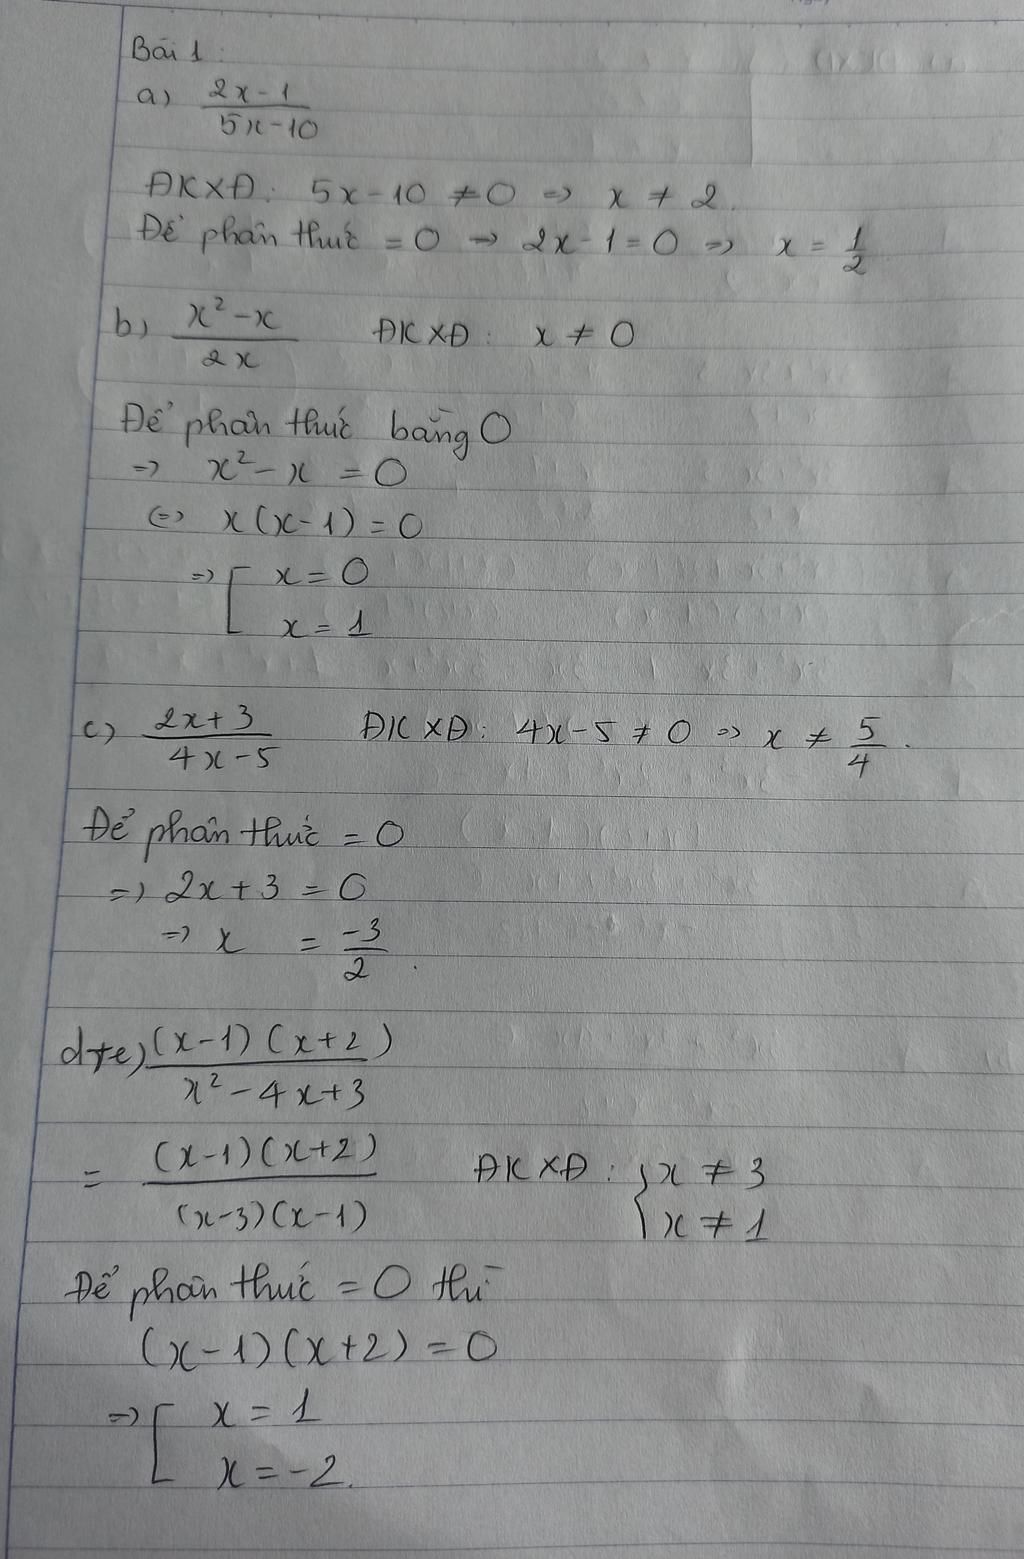 Bài 1:
a) \frac{2x-1}{5x-10}
ĐKXĐ: 5x-10 ≠ 0 => x ≠ 2.
Để phân thức = 0 => 2x-1=0 => x = \frac{1}{2}
b) \frac{x²-x}{2x} ĐKXĐ: x ≠ 0
Để phân thức bằng 0
=> x²-x = 0
<=> x(x-1)=0
=> [ x=0
x=1
c) \frac{2x+3}{4x-5} ĐKXĐ: 4x-5 ≠ 0 => x ≠ \frac{5}{4}.
Để phân thức = 0
=> 2x+3 = 0
=> x = \frac{-3}{2}.
d+e) \frac{(x-1)(x+2)}{x²-4x+3}
= \frac{(x-1)(x+2)}{(x-3)(x-1)} ĐKXĐ: { x ≠ 3
x ≠ 1
Để phân thức = 0 thì
(x-1)(x+2)=0
=> [ x = 1
x = -2.